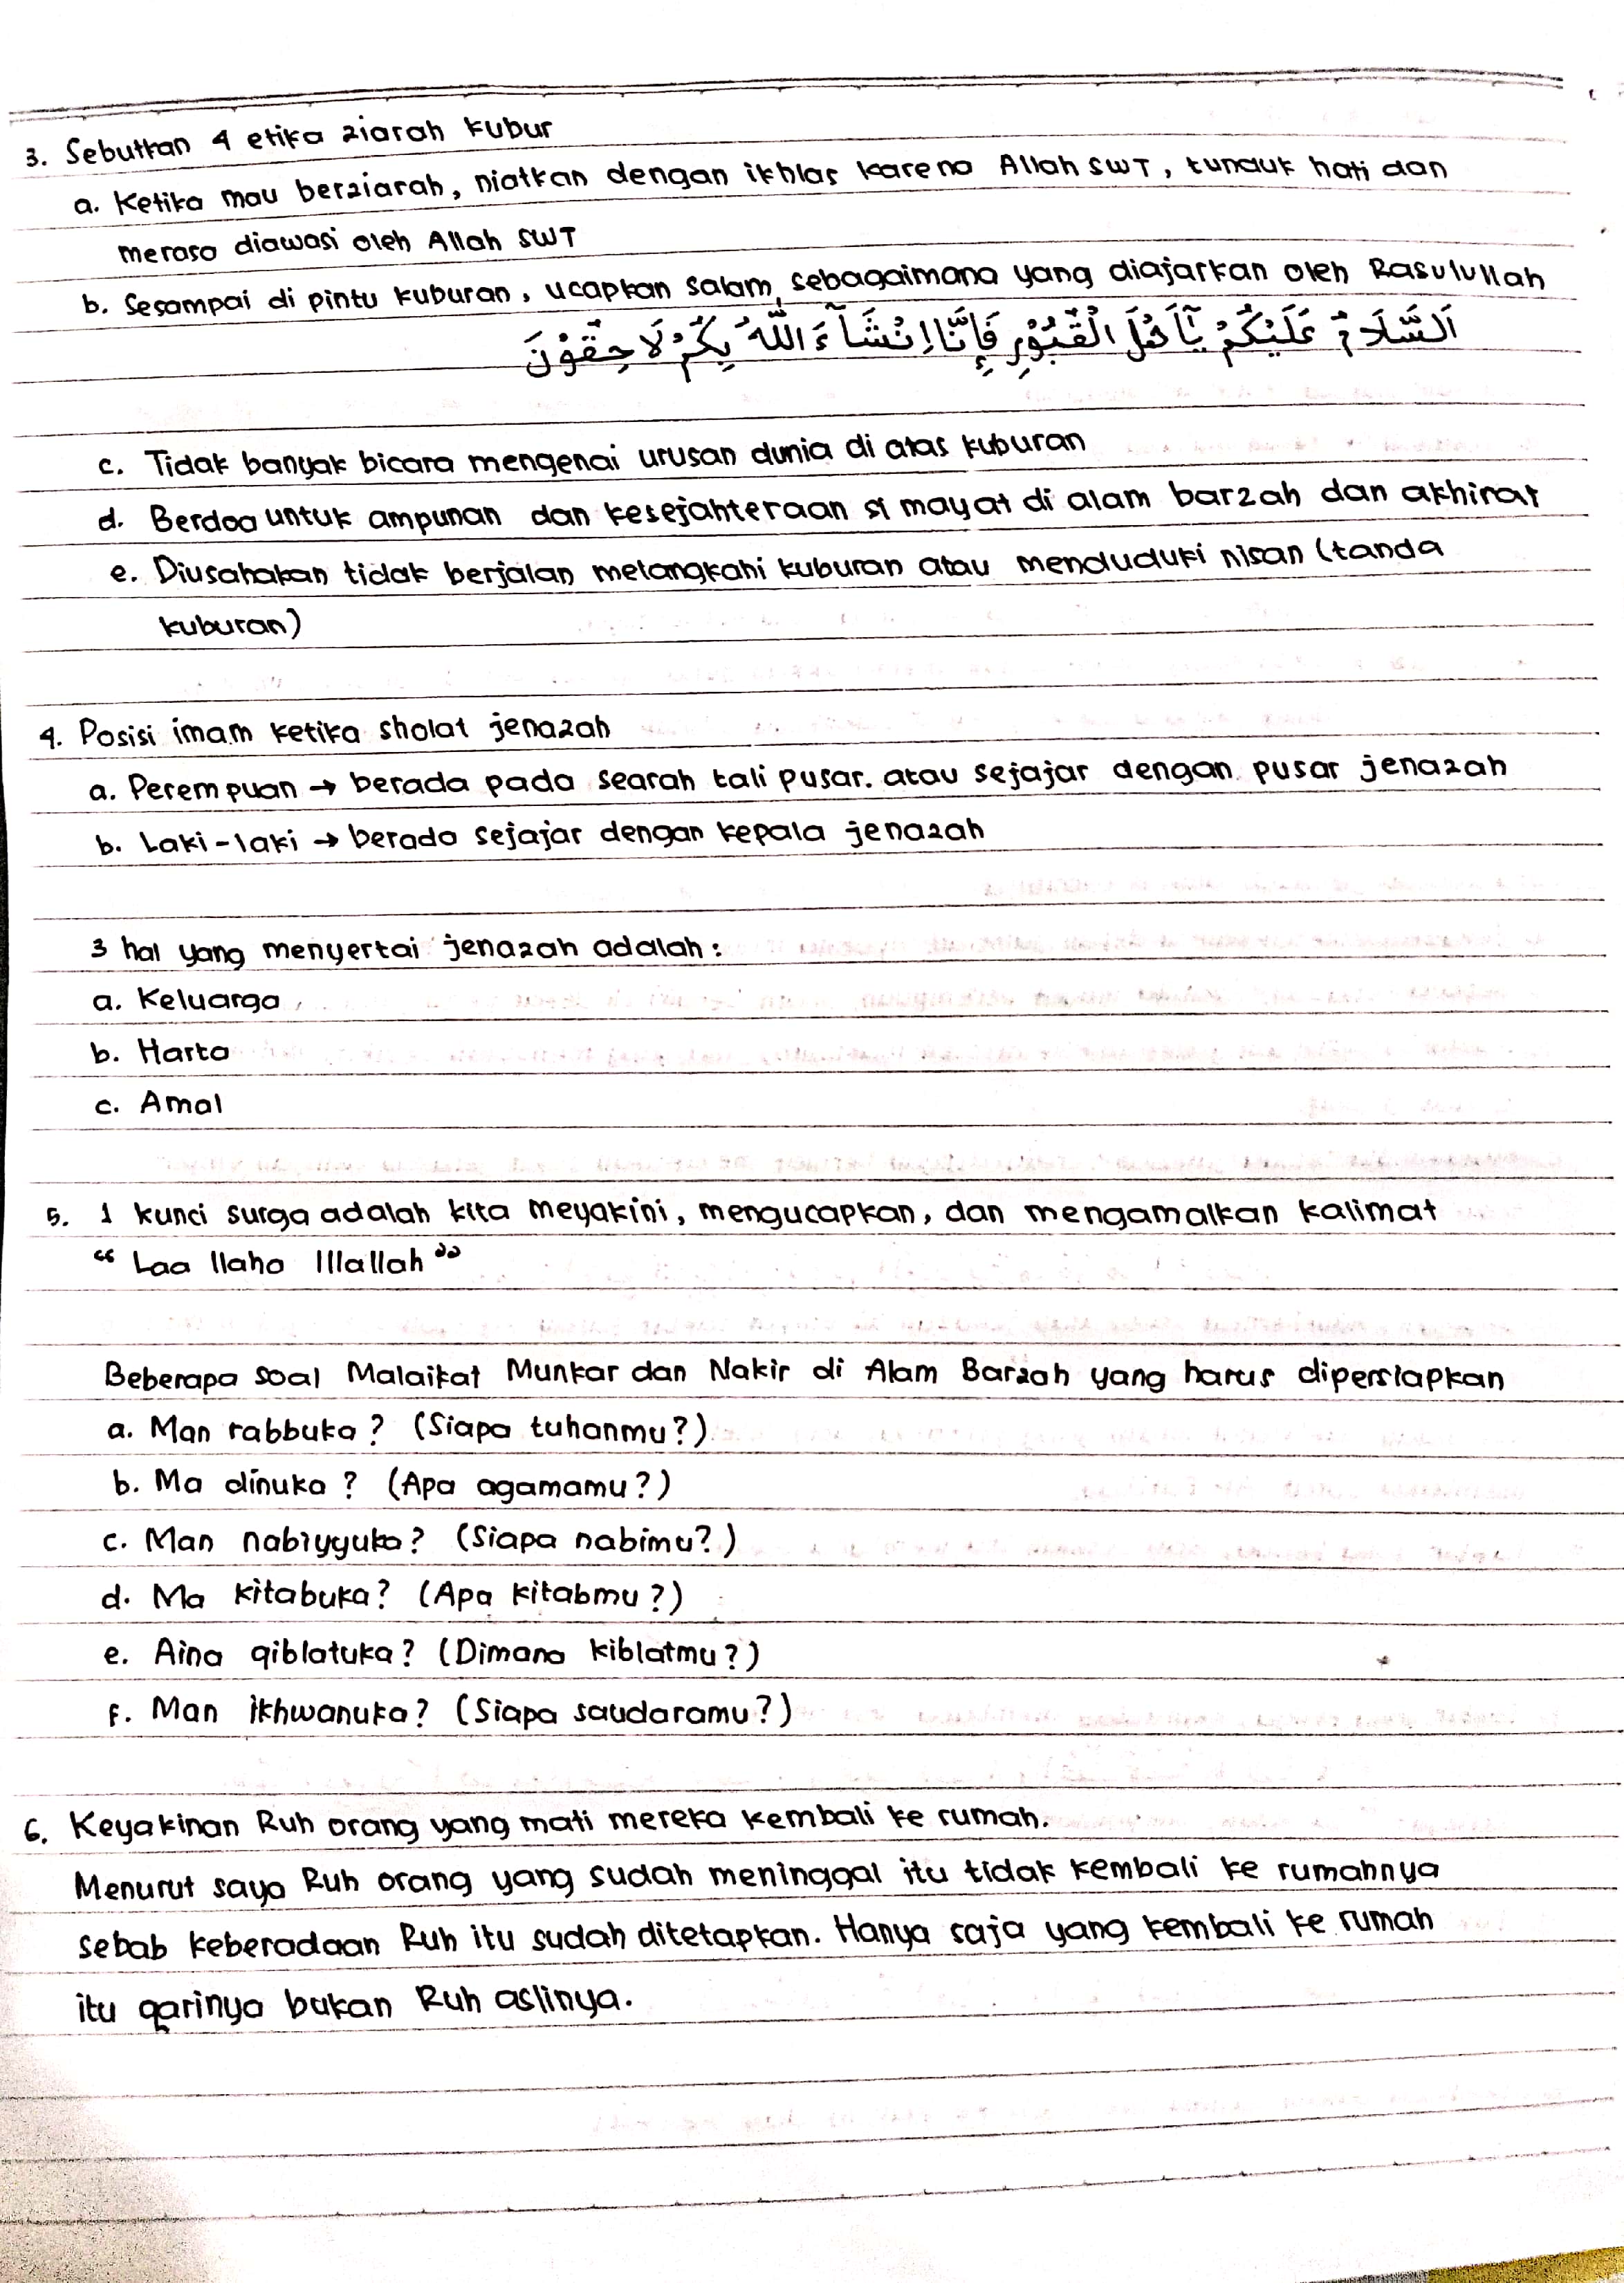 3. Sebutkan 4 etika ziarah kubur
a. Ketika mau berziarah, niatkan dengan ikhlas karena Allah SWT, tunduk hati dan
merasa diawasi oleh Allah SWT
b. Sesampai di pintu kuburan, ucapkan salam, sebagaimana yang diajarkan oleh Rasulullah
اَلسَّلَامُ عَلَيْكُمْ يَآاَهْلَ الْقُبُوْرِ فَإِنَّا اِنْشَآءَ اللّٰهُ بِكُمْ لَاحِقُوْنَ
c. Tidak banyak bicara mengenai urusan dunia di atas kuburan
d. Berdoa untuk ampunan dan kesejahteraan si mayat di alam barzah dan akhirat
e. Diusahakan tidak berjalan melangkahi kuburan atau menduduki nisan (tanda
kuburan)
4. Posisi imam ketika sholat jenazah
a. Perempuan → berada pada searah tali pusar. atau sejajar dengan pusar jenazah
b. Laki-laki → berada sejajar dengan kepala jenazah
3 hal yang menyertai jenazah adalah :
a. Keluarga
b. Harta
c. Amal
5. 1 kunci surga adalah kita meyakini, mengucapkan, dan mengamalkan kalimat
“ Laa Ilaha Illallah ”
Beberapa soal Malaikat Munkar dan Nakir di Alam Barzah yang harus dipersiapkan
a. Man rabbuka? (Siapa tuhanmu?)
b. Ma dinuka? (Apa agamamu?)
c. Man nabiyyuka? (Siapa nabimu?)
d. Ma kitabuka? (Apa kitabmu?)
e. Aina qiblatuka? (Dimana kiblatmu?)
f. Man ikhwanuka? (Siapa saudaramu?)
6. Keyakinan Ruh orang yang mati mereka kembali ke rumah.
Menurut saya Ruh orang yang sudah meninggal itu tidak kembali ke rumahnya
sebab keberadaan Ruh itu sudah ditetapkan. Hanya saja yang kembali ke rumah
itu qarinya bukan Ruh aslinya.